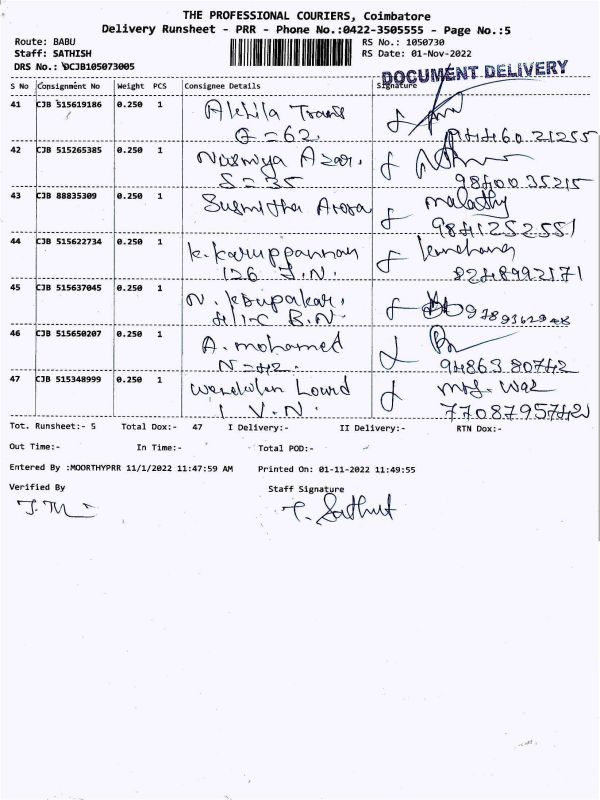 THE PROFESSIONAL COURIERS, Coimbatore
Delivery Runsheet - PRR - Phone No.:0422-3505555 - Page No.:5
Route: BABU RS No.: 1050730
Staff: SATHISH RS Date: 01-Nov-2022
DRS No.: DCJB105073005
DOCUMENT DELIVERY
S No Consignment No Weight PCS Consignee Details Signature
41 CJB 515619186 0.250 1 Akhila Trans
G = 62.
42 CJB 515265385 0.250 1
S = 35 98400 35215
43 CJB 88835309 0.250 1 Susmitha Arora malathy
9841252551
44 CJB 515622734 0.250 1 K. Karuppannan
126 J.N. 8248992171
45 CJB 515637045 0.250 1 N. Koupakar.
B.N
46 CJB 515650207 0.250 1 A. mohamed
N = 42. 94863 80742
47 CJB 515348999 0.250 1
1 V.N. 7708795742
Tot. Runsheet:- 5 Total Dox:- 47 I Delivery:- II Delivery:- RTN Dox:-
Out Time:- In Time:- Total POD:-
Entered By :MOORTHYPRR 11/1/2022 11:47:59 AM Printed On: 01-11-2022 11:49:55
Verified By Staff Signature